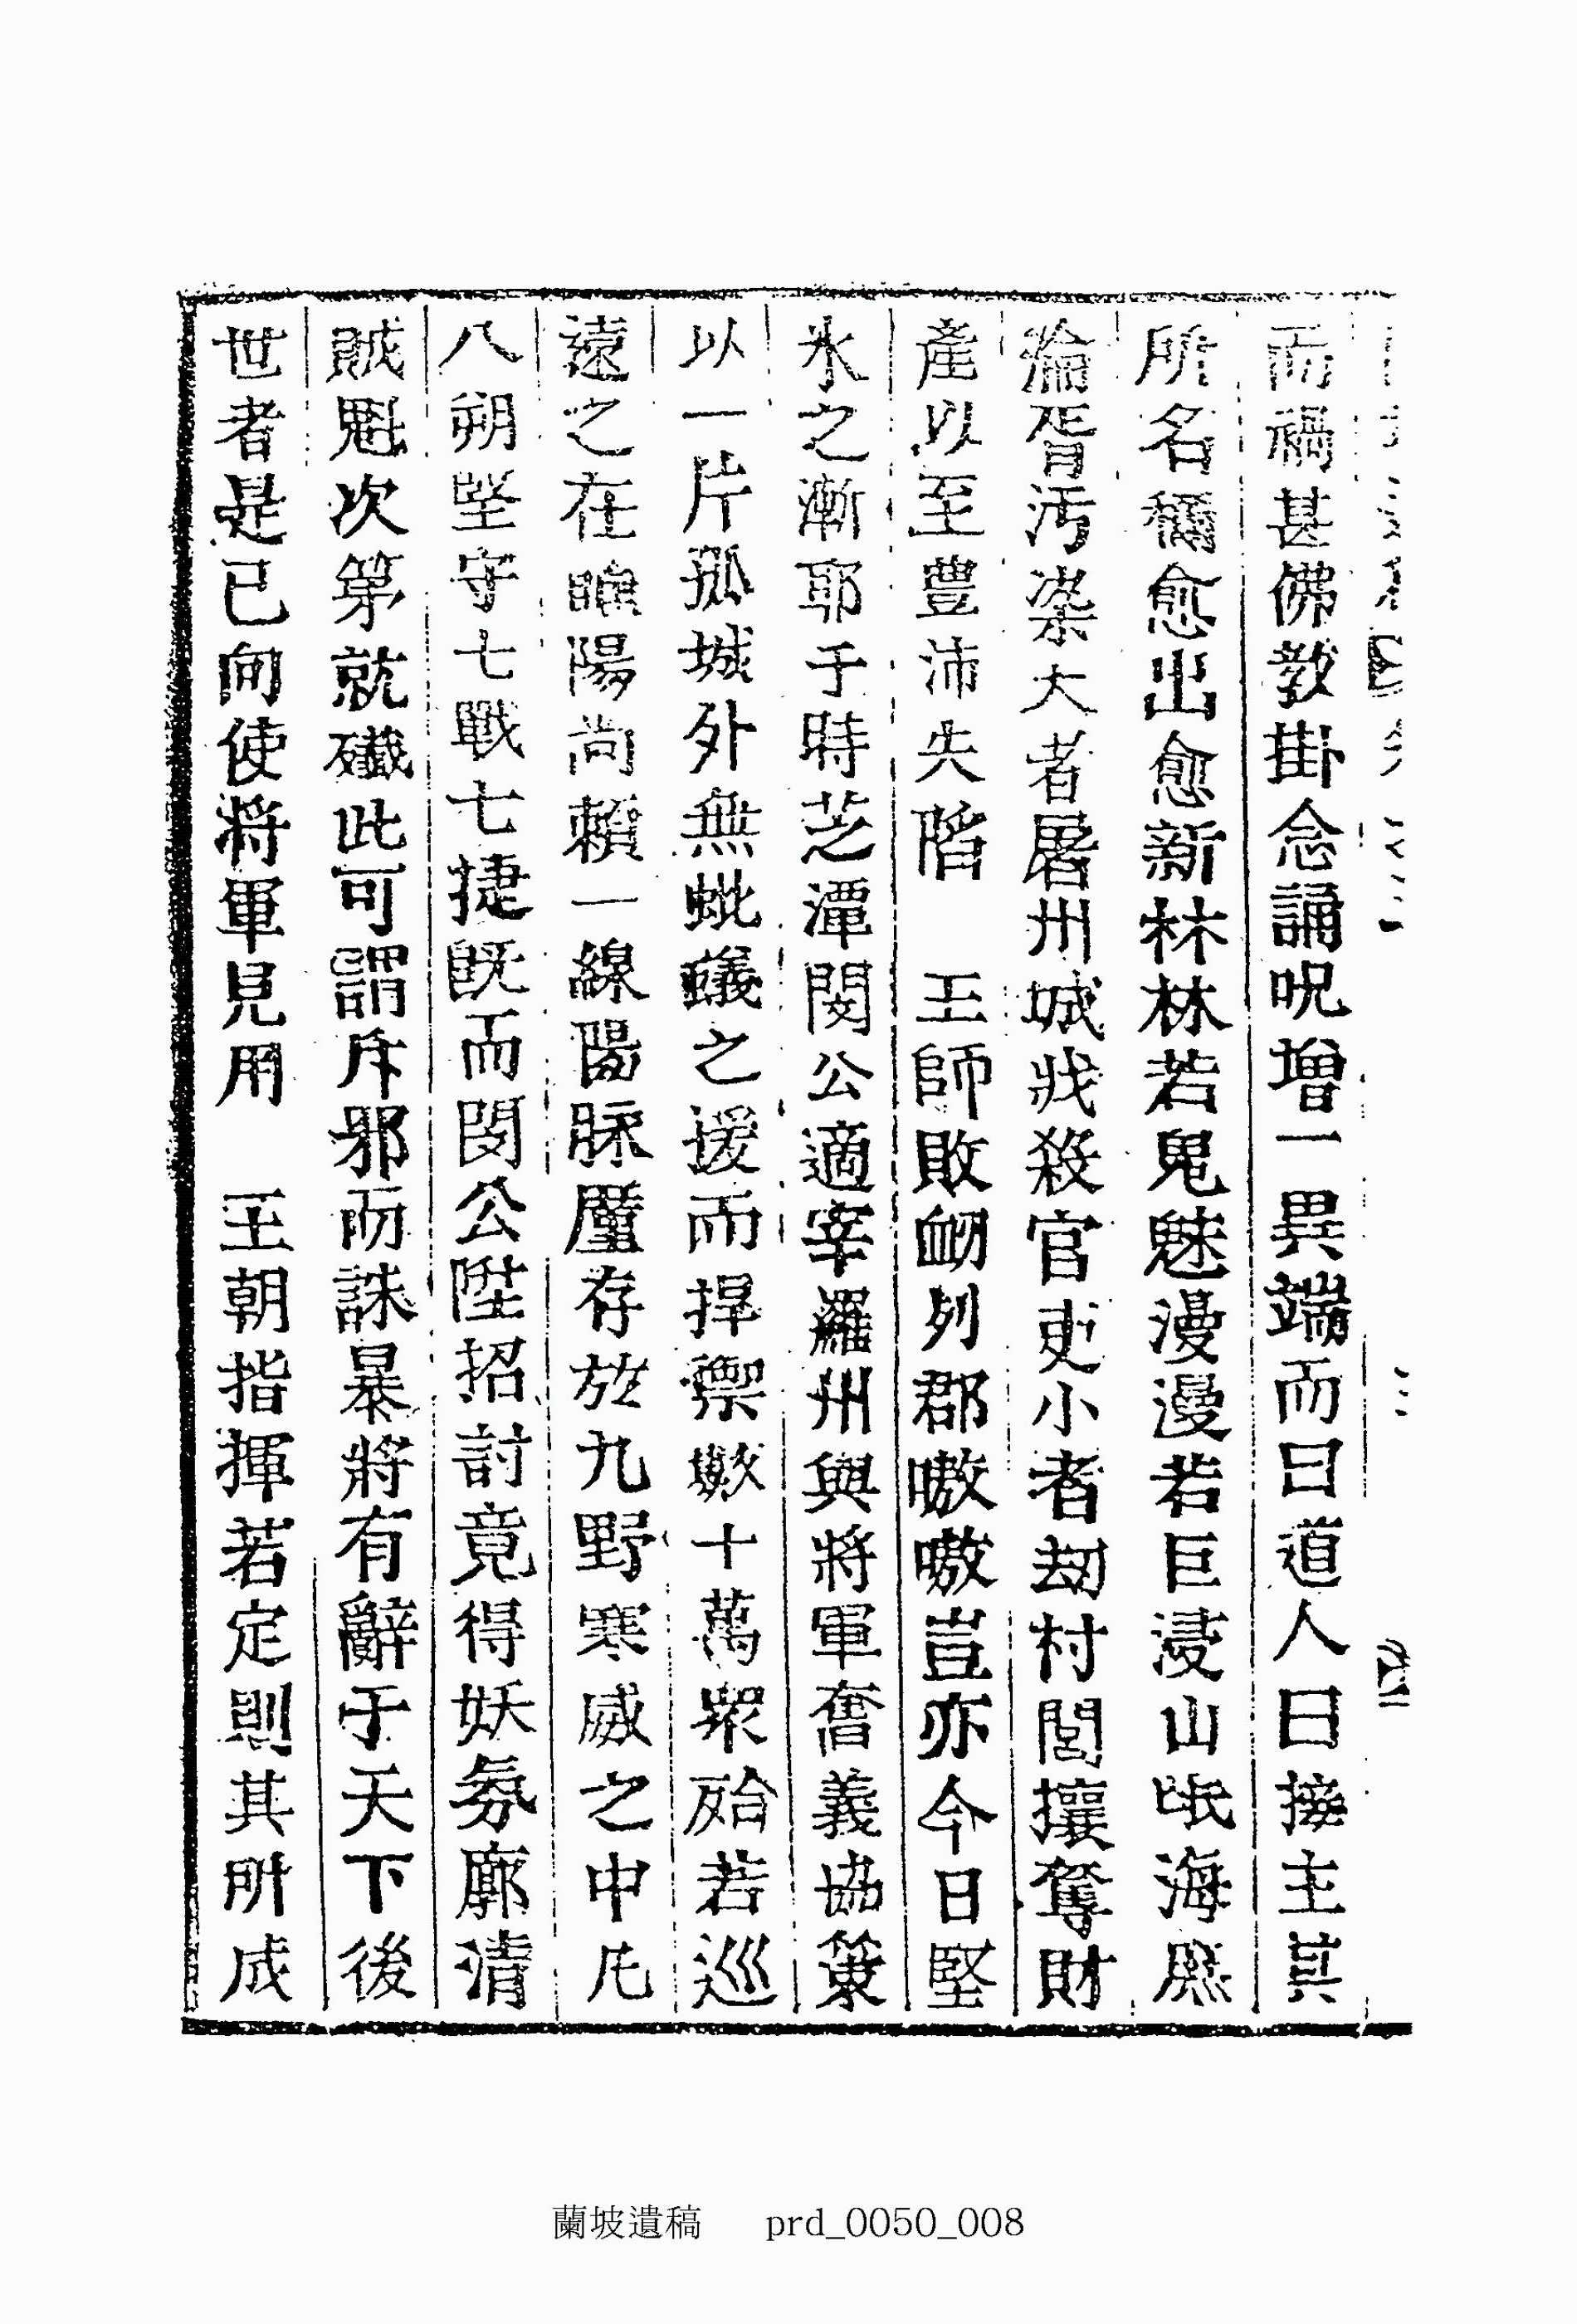 而禍甚佛教掛念誦呪增一異端而曰道人曰接主其
所名稱愈出愈新林林若鬼魅漫漫若巨浸山岷海㶑
淪胥汚染大者屠州城戕殺官吏小者刼村閭攘奪財
產以至豊沛失陷　王師敗衂列郡嗷嗷豈亦今日堅
氷之漸耶于時芝潭閔公適宰羅州與將軍奮義協策
以一片孤城外無蚍蟻之援而捍禦數十萬衆殆若巡
遠之在睢陽尚賴一線陽脉厪存於九野寒威之中凡
八朔堅守七戰七捷旣而閔公陞招討竟得妖氛廓淸
賊魁次第就殲此可謂斥邪而誅暴將有辭于天下後
世者是已向使將軍見用　王朝指揮若定則其所成
蘭坡遺稿　prd_0050_008